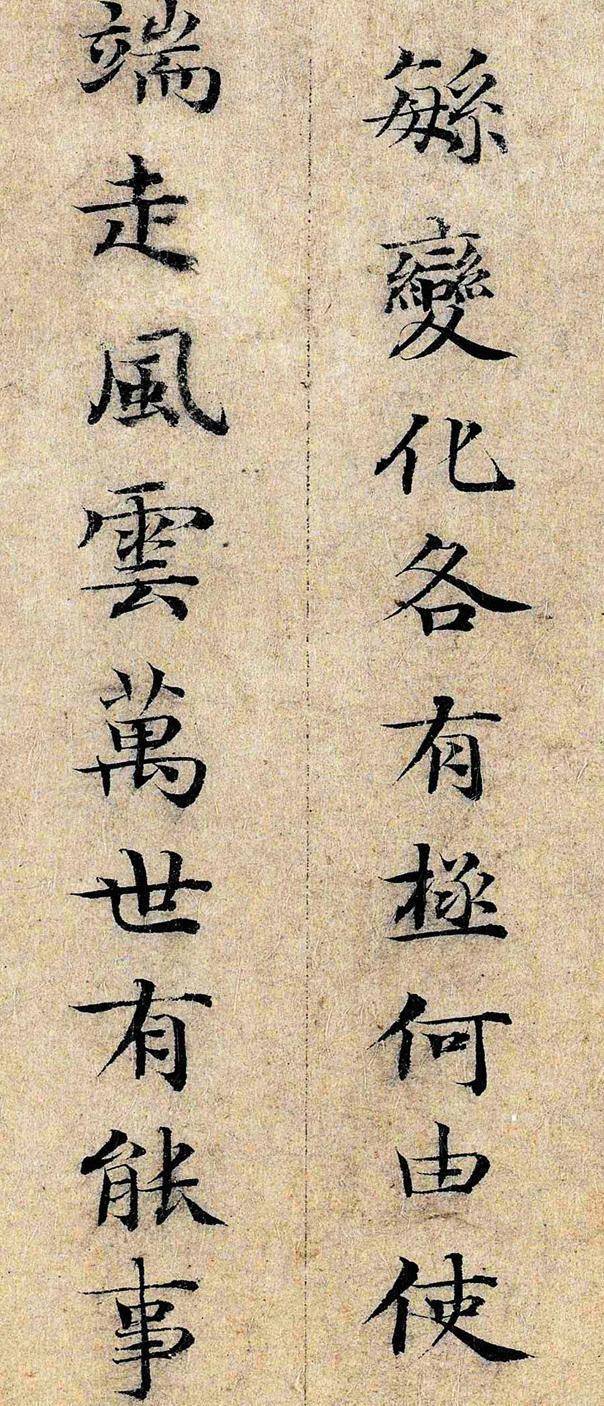 緐變化各有極何由使
端走風雲萬世有能事